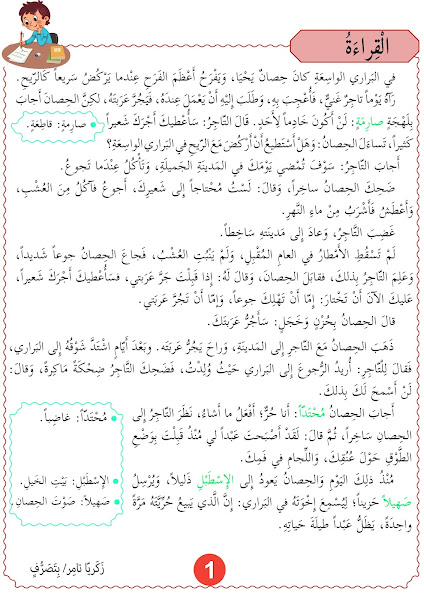 الْقِراءَةُ
في البَراري الواسِعَةِ كانَ حِصانٌ يَحْيَا، وَيَفْرَحُ أَعْظَمَ الفَرَحِ عِنْدما يَرْكُضُ سَريعاً كَالرِّيحِ.
رَآهُ يَوْماً تاجِرٌ غَنِيٌّ، فَأُعْجِبَ بِهِ، وَطَلَبَ إِلَيْهِ أَنْ يَعْمَلَ عِنْدَهُ، فَيَجُرَّ عَرَبَتَهُ، لكِنَّ الحِصانَ أَجابَ
بِلَهْجَةٍ صارِمَةٍ: لَنْ أَكُونَ خَادِماً لِأَحَدٍ. قَالَ التّاجِرُ: سَأُعْطيكَ أَجْرَكَ شَعيراً
صارِمةٍ: قاطِعَة.
كَثيراً، تَساءَلَ الحِصانُ: وَهَلْ أَسْتَطيعُ أَنْ أَرْكُضَ مَعَ الرّيحِ في البَراري الواسِعَةِ؟
أَجابَ التّاجِرُ: سَوْفَ تُمْضي يَوْمَكَ في المَدينَةِ الجَميلَةِ، وَتَأْكُلُ عِنْدَما تَجوعُ.
ضَحِكَ الحِصانُ ساخِراً، وَقالَ: لَسْتُ مُحْتاجاً إِلى شَعيرِكَ، أَجوعُ فآكُلُ مِنَ العُشْبِ،
وَأَعْطَشُ فَأَشْرَبُ مِنْ ماءِ النَّهرِ.
غَضِبَ التّاجِرُ، وَعادَ إِلى مَدينَتِهِ سَاخِطاً.
لَمْ تَسْقُطِ الأَمْطارُ في العامِ المُقْبِلِ، وَلَمْ يَنْبُتِ العُشْبُ، فَجاعَ الحِصانُ جوعاً شَديداً،
وَعَلِمَ التّاجِرُ بِذلكَ، فقابَلَ الحِصانَ، وَقالَ لَهُ: إِذا قَبِلْتَ جَرَّ عَرَبَتي، فسَأُعْطيكَ أَجْرَكَ شَعيراً،
عَليكَ الآنَ أَنْ تَخْتارَ: إِمّا أَنْ تَهْلِكَ جوعاً، وَإِمّا أَنْ تَجُرَّ عَرَبَتي.
قالَ الحِصانُ بِحُزْنٍ وَخَجَلٍ: سَأَجُرُّ عَرَبَتَكَ.
ذَهَبَ الحِصانُ مَعَ التّاجِرِ إِلى المَدينَةِ، وَراحَ يَجُرُّ عَرَبَتَه. وَبعْدَ أَيّامٍ اشْتَدَّ شَوْقُهُ إِلى البَراري،
فَقالَ لِلتَّاجِرِ: أُريدُ الرُّجوعَ إِلى البَراري حَيْثُ وُلِدْتُ، فَضَحِكَ التَّاجِرُ ضِحْكَةً ماكِرةً، وَقالَ:
لَنْ أَسْمَحَ لَكَ بِذلِكَ.
أَجابَ الحِصانُ مُحْتَدّاً: أَنا حُرٌّ؛ أَفْعَلُ ما أَشاءُ، نَظَرَ التّاجِرُ إِلى
مُحْتَدّاً: غاضِباً.
الحِصانِ سَاخِراً، ثُمَّ قالَ: لَقَدْ أَصْبَحتَ عَبْداً لي مُنْذُ قَبِلْتَ بِوَضْعِ
الطَّوْقِ حَوْلَ عُنُقِكَ، وَاللِّجامِ في فَمِكَ.
مُنْذُ ذلِكَ اليَوْمِ وَالحِصانُ يَعودُ إِلى الإِسْطَبْلِ ذَليلاً، وَيُرْسِلُ
الإِسْطَبْل: بَيْت الخَيلِ.
صَهيلاً حَزيناً؛ لِيُسْمِعَ إِخْوَتَهُ في البَراري: إِنَّ الَّذي يَبيعُ حُرِّيَّتَهُ مَرَّةً
صَهيلاً: صَوْتَ الحِصانِ.
واحِدَةً، يَظَلُّ عَبْداً طيلَةَ حَياتِهِ.
زَكَريّا تامِر/ بِتَصَرُّفٍ
1